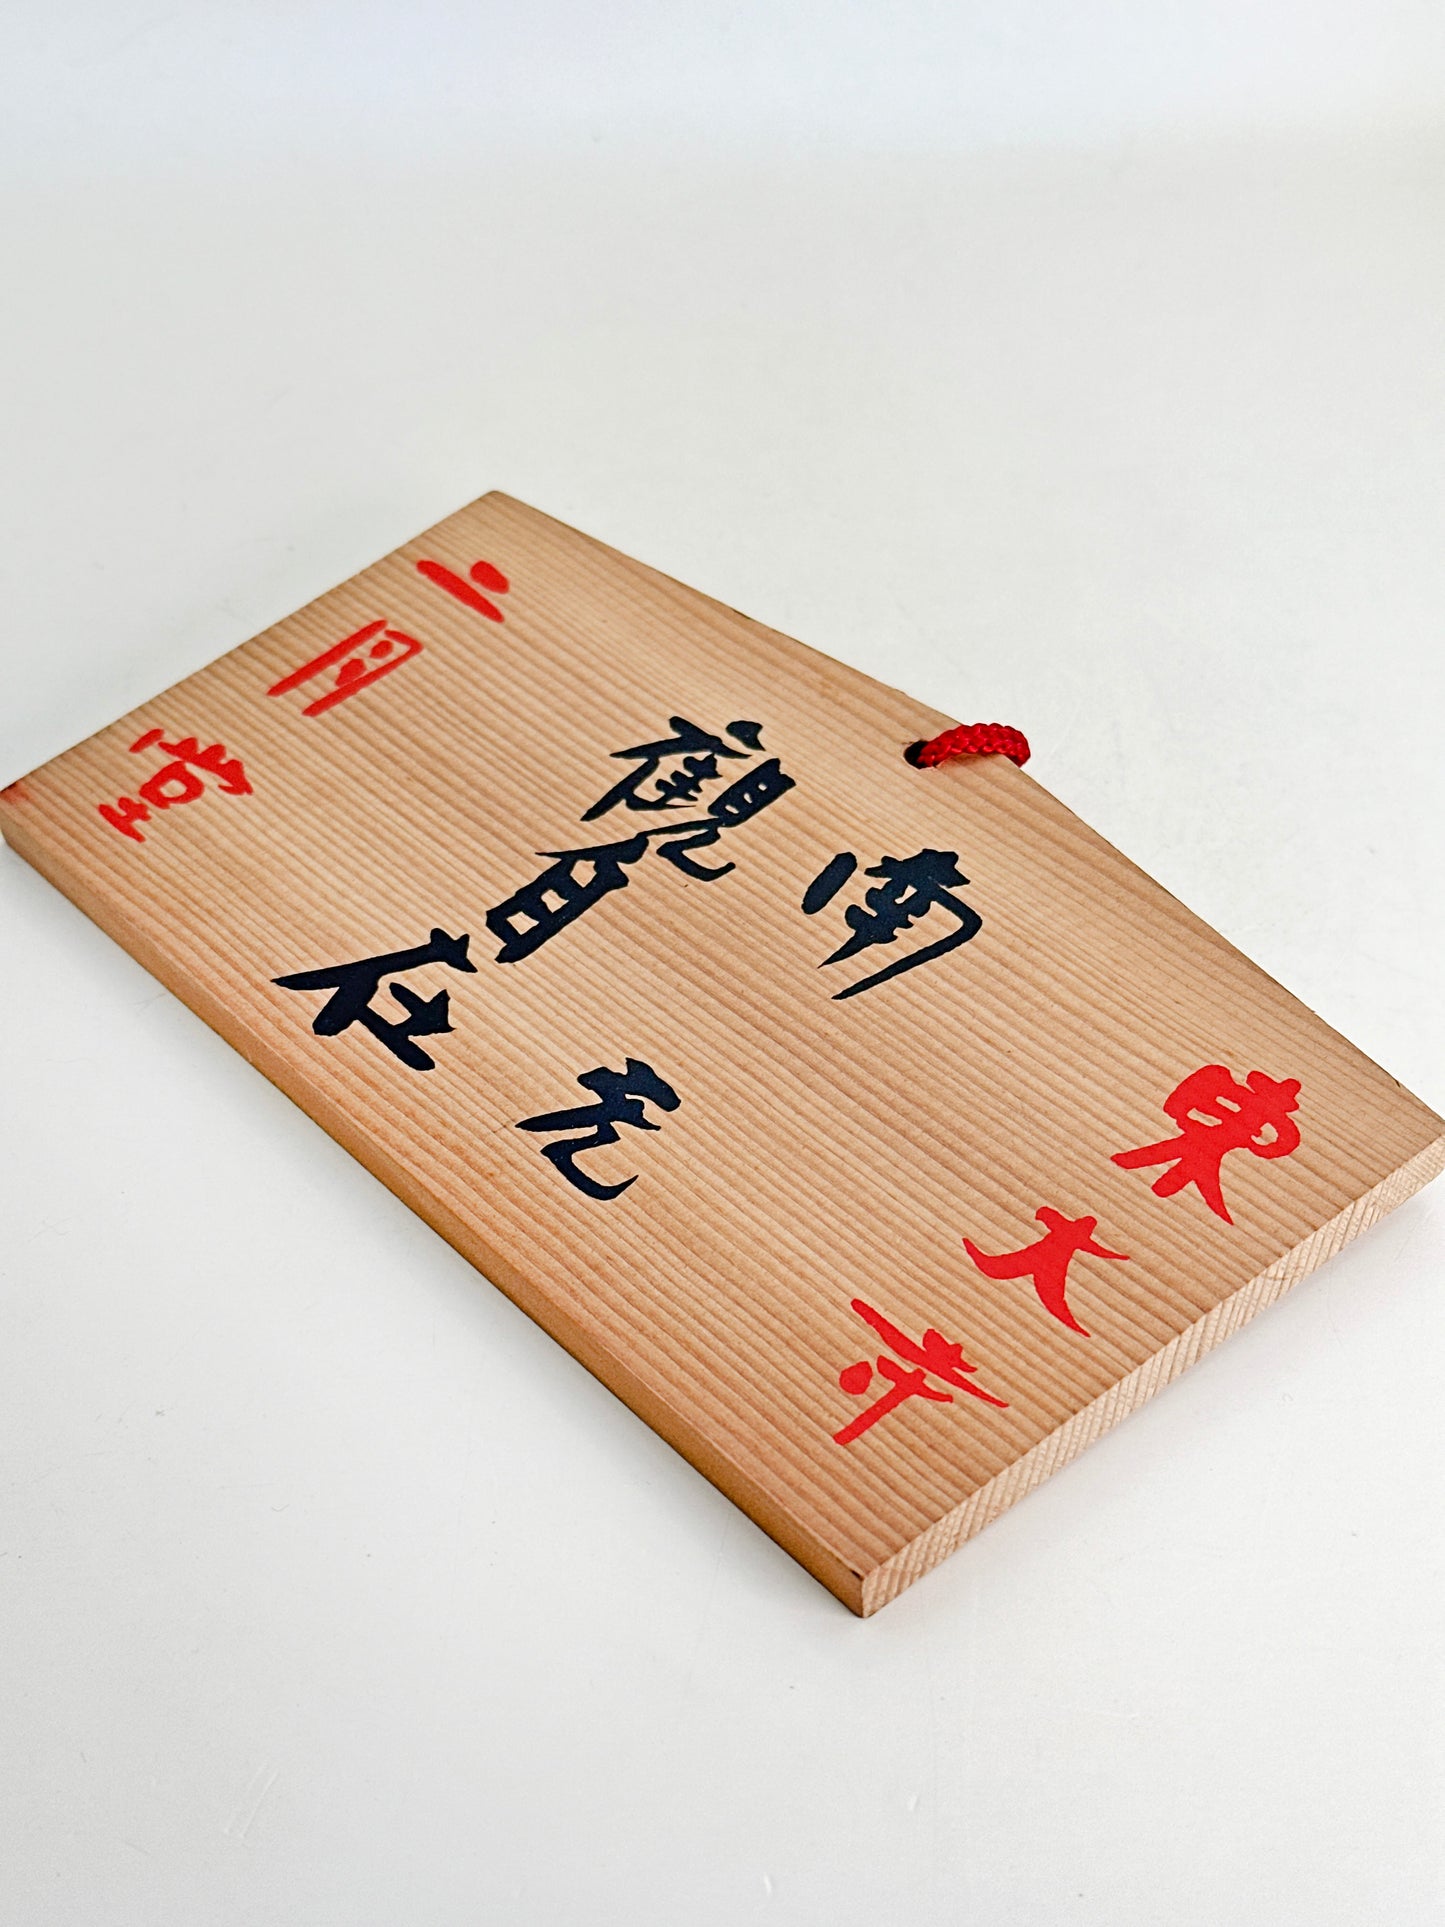 東大寺
南无
觀自在
二月堂